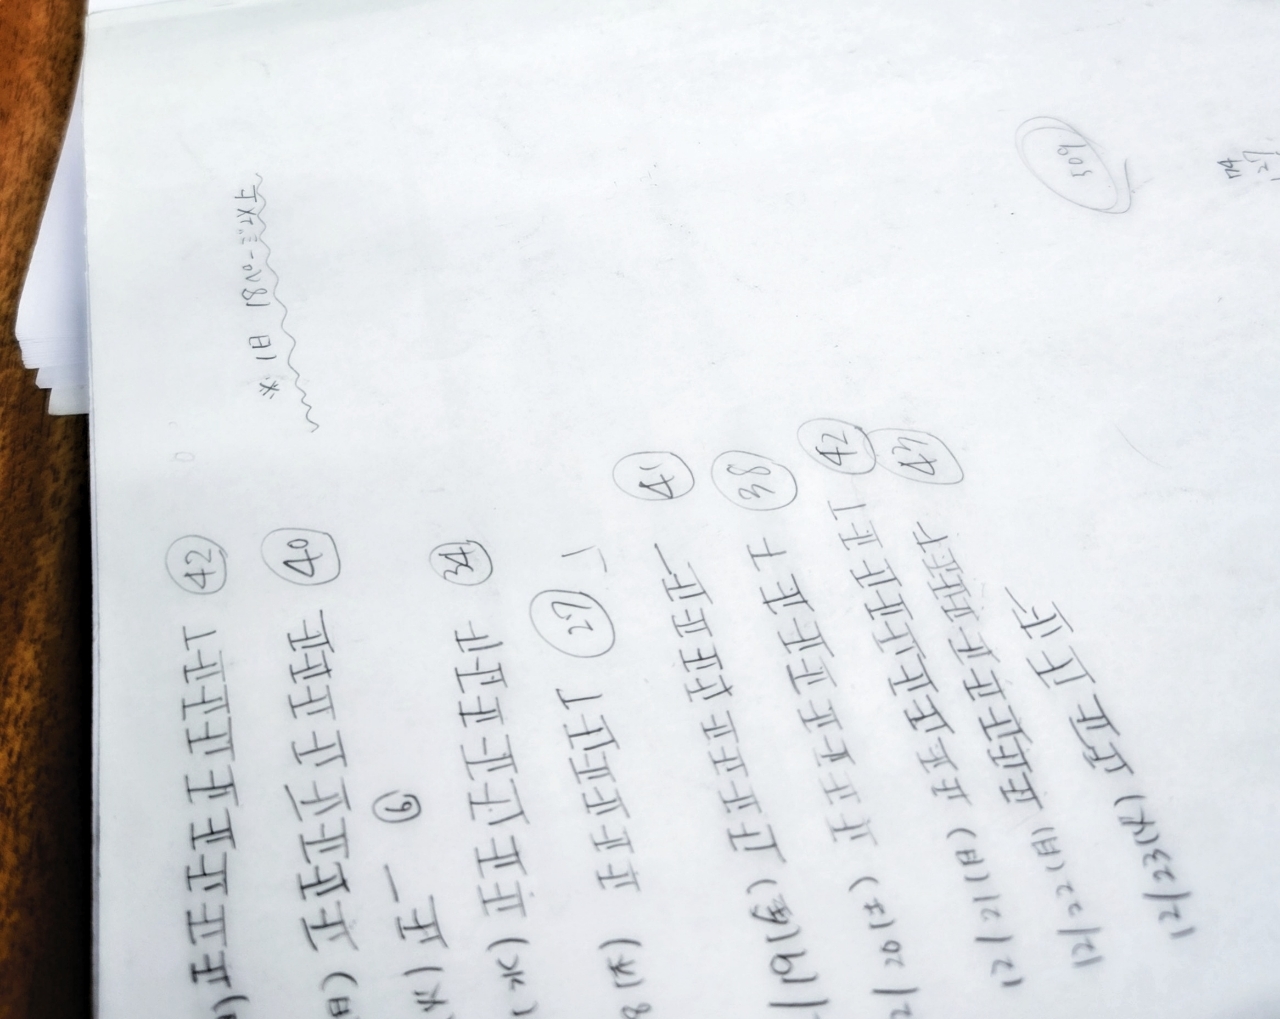 ※1日 18ページ以上
) 正正正正正正正正T 42
) 正正正正正正正正 40
火) 正一 6
(水) 正正正正正正 34
8 (木) 正正正正正T 27
/19 (金) 正正正正正正正正一 41
2/20 (土) 正正正正正正正下 38
12/21 (日) 正正正正正正正正T 42
12/22 (月) 正正正正正正正正下 43
12/23 (火) 正正正正
509